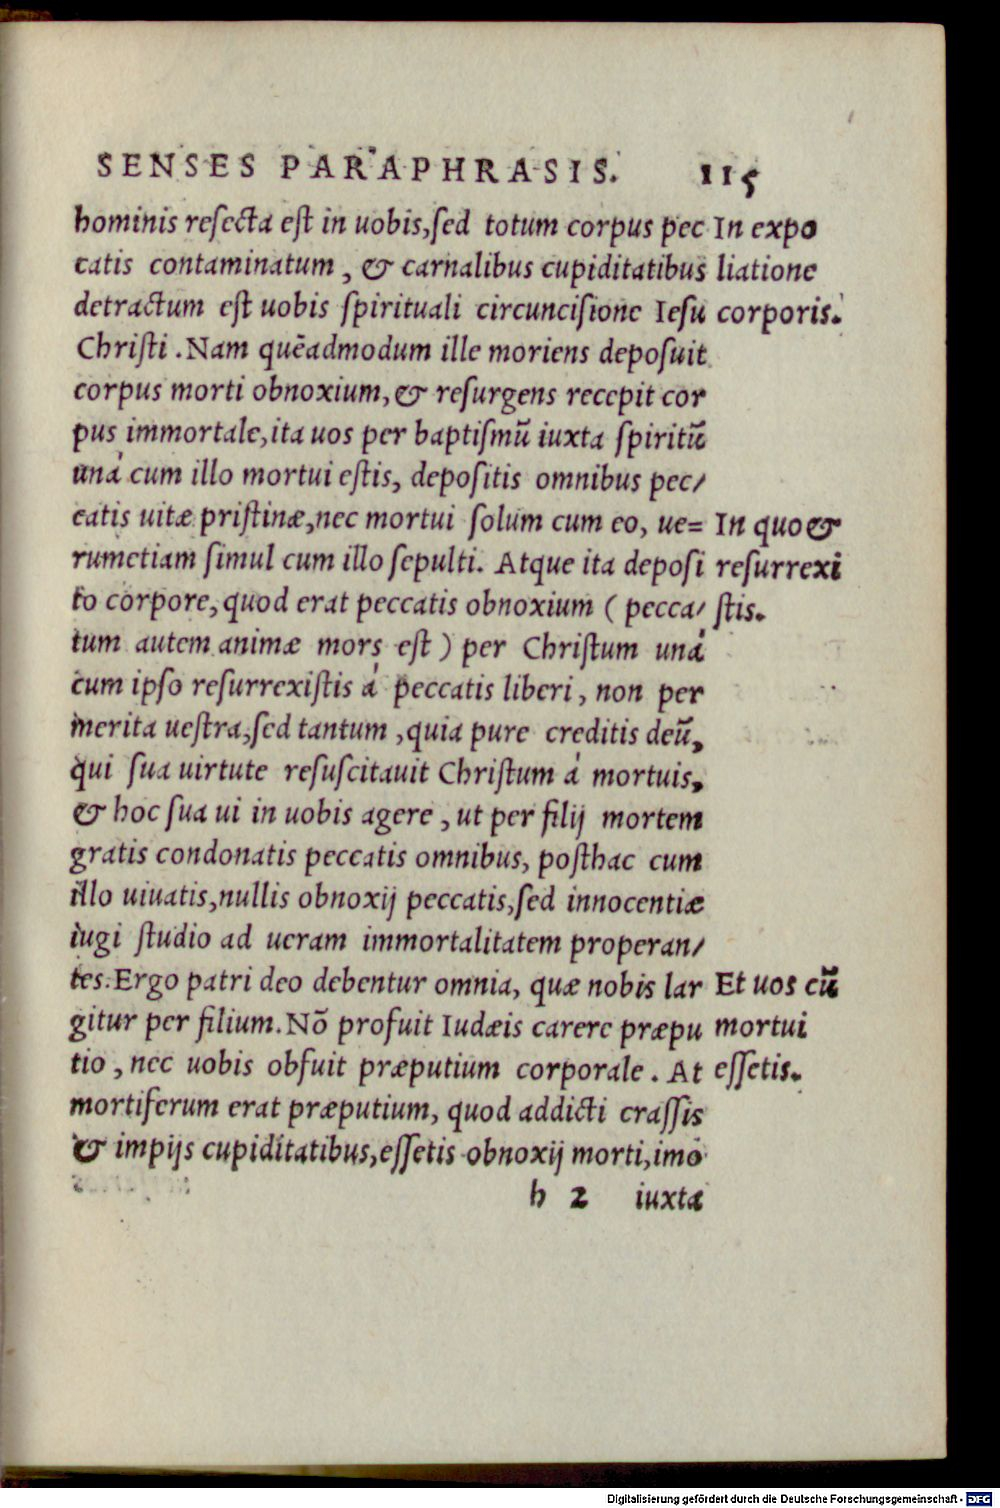 SENSES PARAPHRASIS. 115
hominis resecta est in uobis,sed totum corpus pec
catis contaminatum, & carnalibus cupiditatibus
detractum est uobis spirituali circuncisione Iesu
Christi. Nam quēadmodum ille moriens deposuit
corpus morti obnoxium, & resurgens recepit cor
pus immortale,ita uos per baptismū iuxta spiritū
unà cum illo mortui estis, depositis omnibus pec/
catis uitæ pristinæ,nec mortui solum cum eo, ue=
rumetiam simul cum illo sepulti. Atque ita deposi
to corpore, quod erat peccatis obnoxium ( pecca/
tum autem animæ mors est ) per Christum unà
cum ipso resurrexistis à peccatis liberi, non per
merita uestra,sed tantum, quia pure creditis deū,
qui sua uirtute resuscitauit Christum à mortuis,
& hoc sua ui in uobis agere, ut per filij mortem
gratis condonatis peccatis omnibus, posthac cum
illo uiuatis,nullis obnoxij peccatis,sed innocentiæ
iugi studio ad ueram immortalitatem properan/
tes. Ergo patri deo debentur omnia, quæ nobis lar
gitur per filium. Nō profuit Iudæis carere præpu
tio, nec uobis obfuit præputium corporale. At
mortiferum erat præputium, quod addicti crassis
& impijs cupiditatibus,essetis obnoxij morti,imò
h 2 iuxta
In expo
liatione
corporis.
In quo &
resurrexi
stis.
Et uos cū
mortui
essetis.
Digitalisierung gefördert durch die Deutsche Forschungsgemeinschaft - DFG